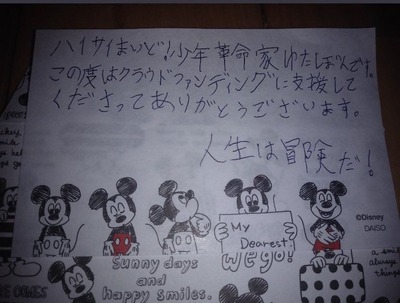 ハイサイまいど!少年革命家ゆたぼんです。
この度はクラウドファンディングに支援して
くださってありがとうございます。
人生は冒険だ!
©Disney
DAISO
My
Dearest
We go!
Sunny days
and
happy smiles.
a smile
always
things